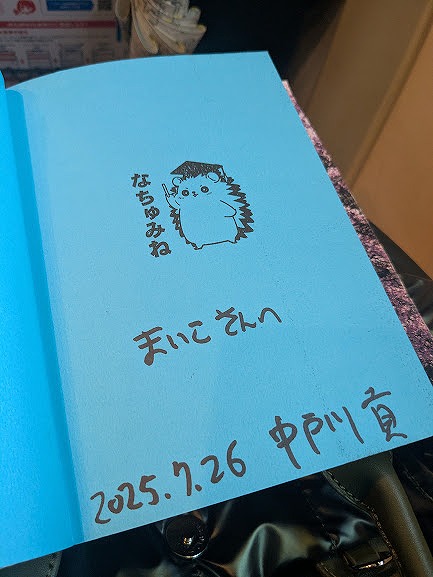 なちゅみね
まいこさんへ
2025.7.26 中戸川 貢